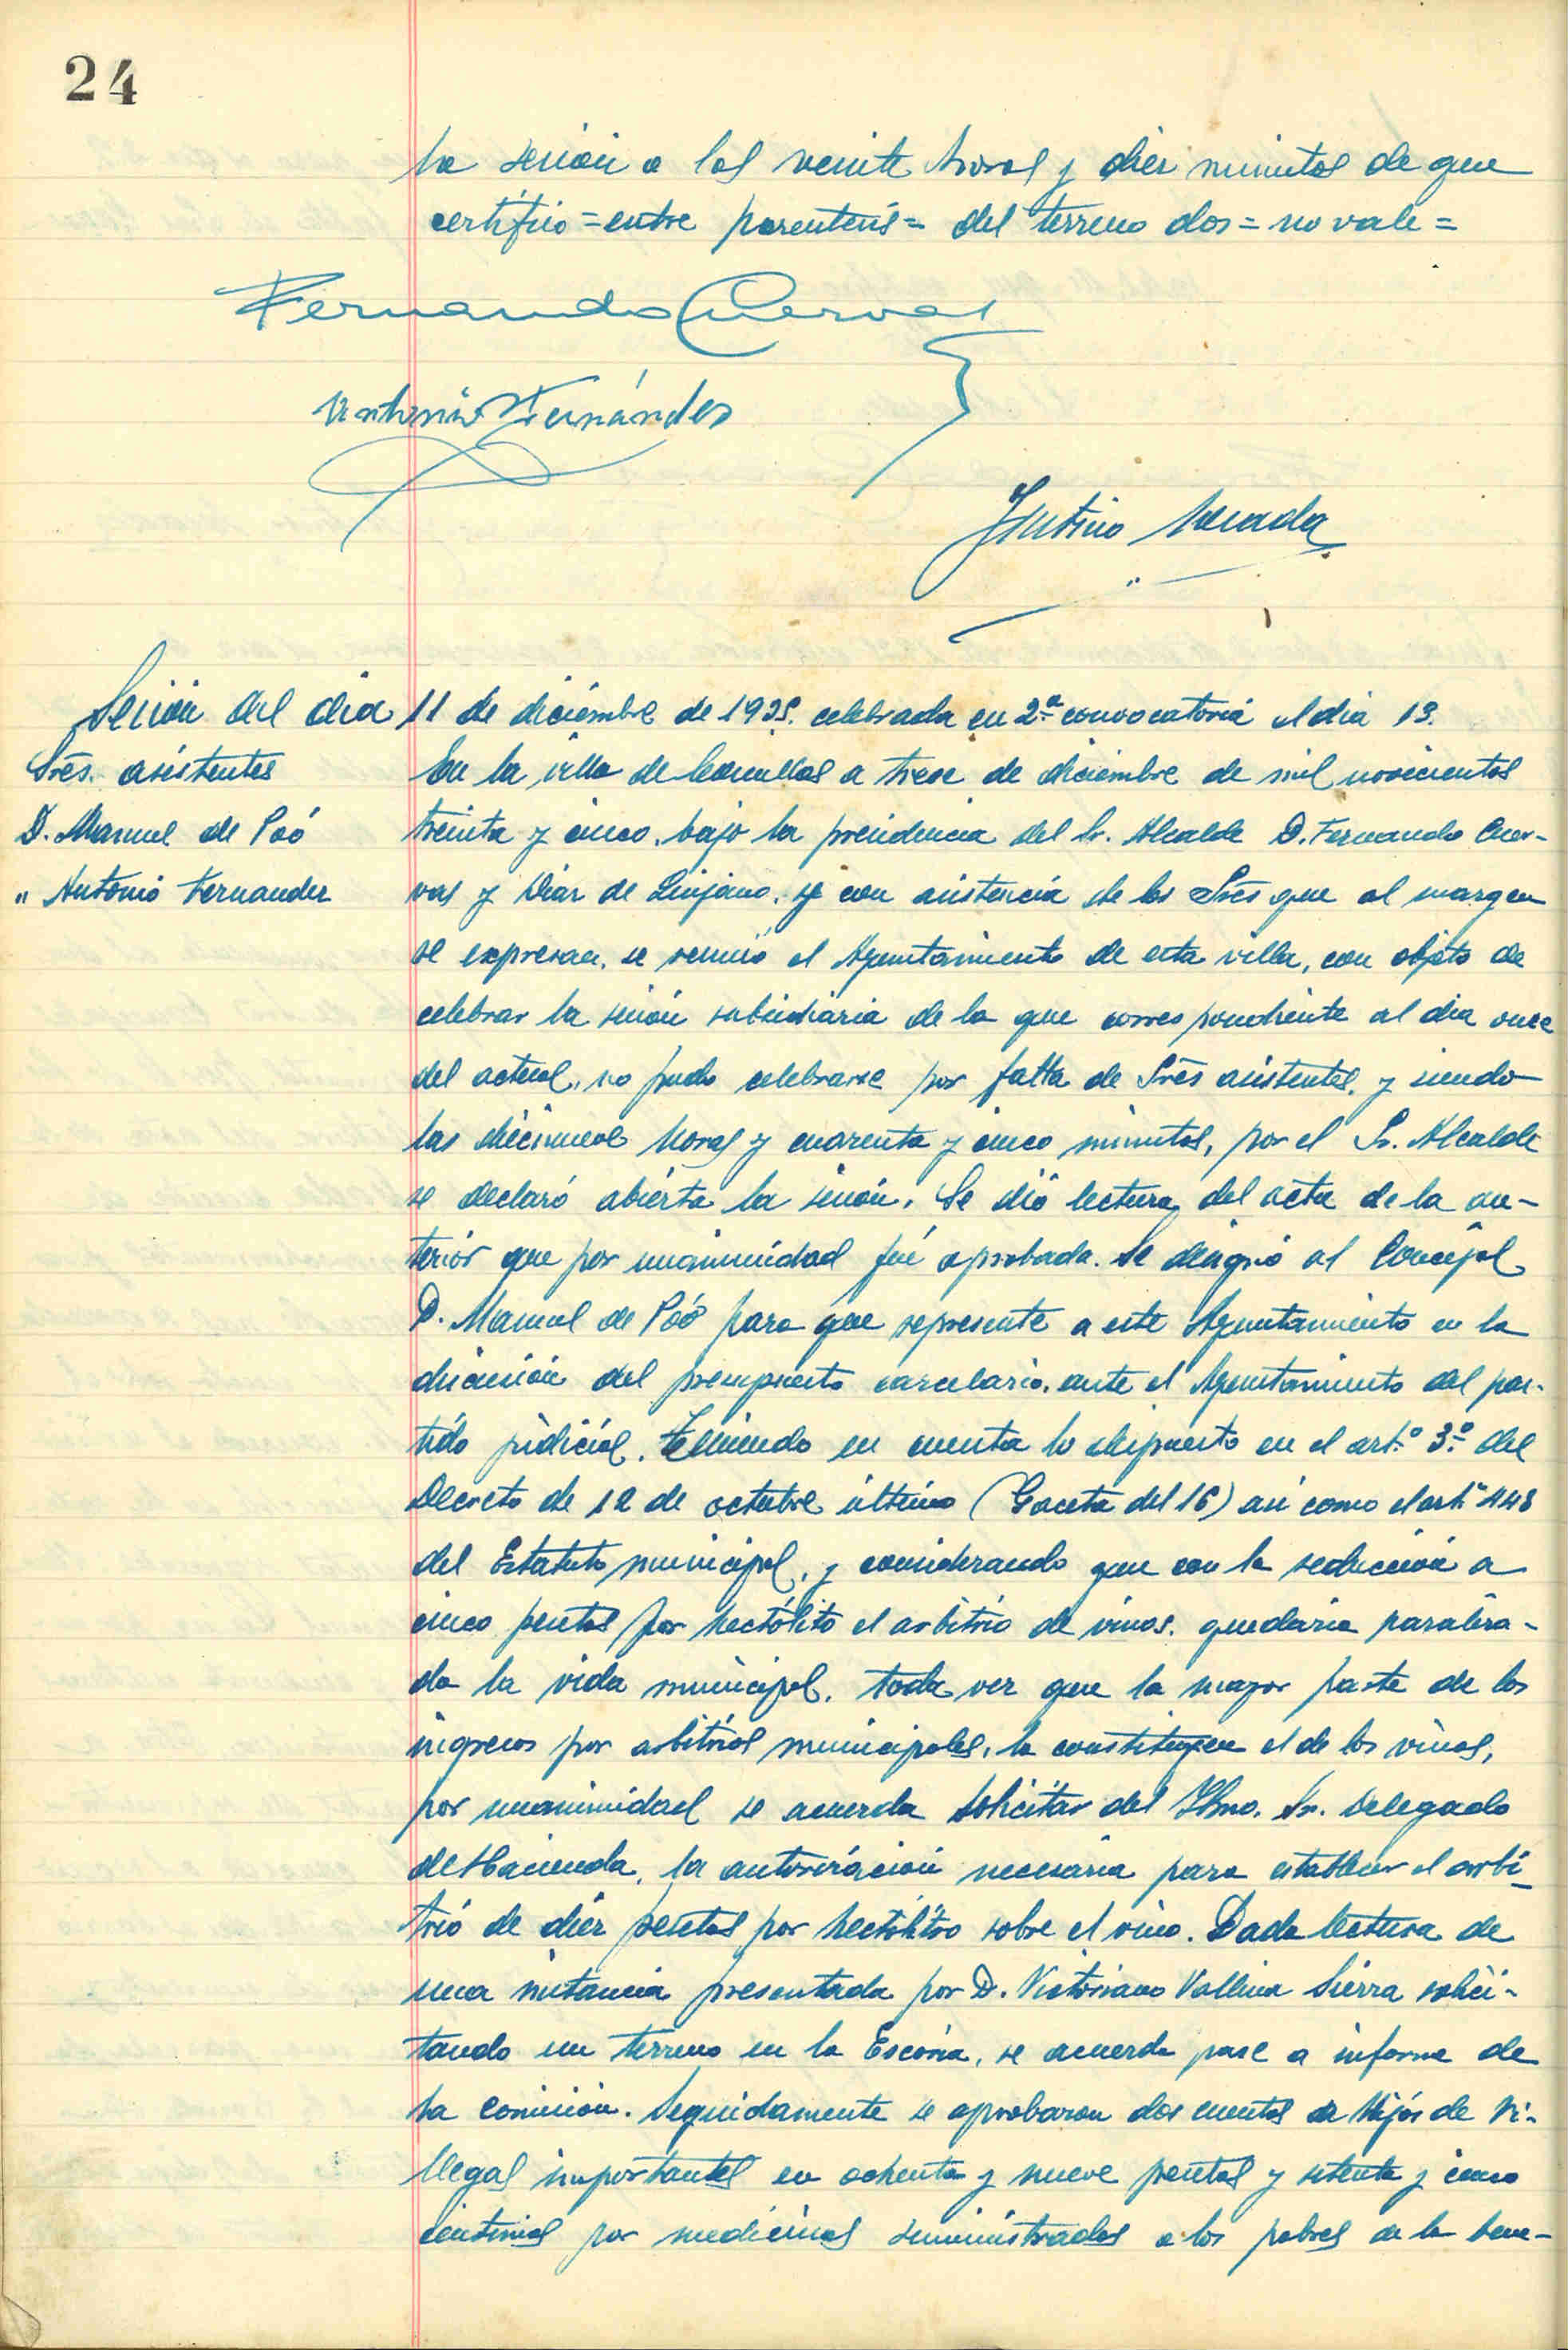 24
la sesión a las veinte horas y diez minutos de que
certifico = entre parentesis = del terreno dos = no vale =
Fernando Cuevas
Antonio Fernández
Sesión del dia 11 de diciembre de 1935. celebrada en 2ª convocatoria el dia 13.
Sres. asistentes
D. Manuel de Poó
" Antonio Fernandez
En la villa de Comillas a trece de diciembre de mil novecientos
treinta y cinco, bajo la presidencia del Sr. Alcalde D. Fernando Cue-
vas y Diaz de Quijano, y con asistencia de los Sres que al margen
se expresan, se reunió el Ayuntamiento de esta villa, con objeto de
celebrar la sesión subsidiaria de la que correspondiente al dia once
del actual, no pudo celebrarse por falta de Sres asistentes, y siendo
las diecinueve horas y cuarenta y cinco minutos, por el Sr. Alcalde
se declaró abierta la sesión. Se dió lectura del acta de la an-
terior que por unanimidad fué aprobada. Se designó al Concejal
D. Manuel de Poó para que represente a este Ayuntamiento en la
discusión del presupuesto carcelario, ante el Ayuntamiento del par-
tido judicial. Teniendo en cuenta lo dispuesto en el artº 3º del
Decreto de 12 de octubre último (Gaceta del 16) asi como el artº 448
del Estatuto municipal, y considerando que con la reducción a
cinco pesetas por hectólito el arbitrio de vinos, quedaria paraliza-
da la vida municipal, toda vez que la mayor parte de los
ingresos por arbitrios municipales, la constituyen el de los vinos,
por unanimidad se acuerda solicitar del Iltmo. Sr. Delegado
de Hacienda, la autorización necesaria para establecer el arbi-
trio de diez pesetas por hectólitro sobre el vino. Dada lectura de
una instancia presentada por D. Victoriano Vallina Sierra solici-
tando un terreno en la Escoria, se acuerda pase a informe de
la comisión. Seguidamente se aprobaron dos cuentas de Hijos de Vi-
llegas importantes en ochenta y nueve pesetas y setenta y cinco
centimos por medicinas suministradas a los pobres de la bene-